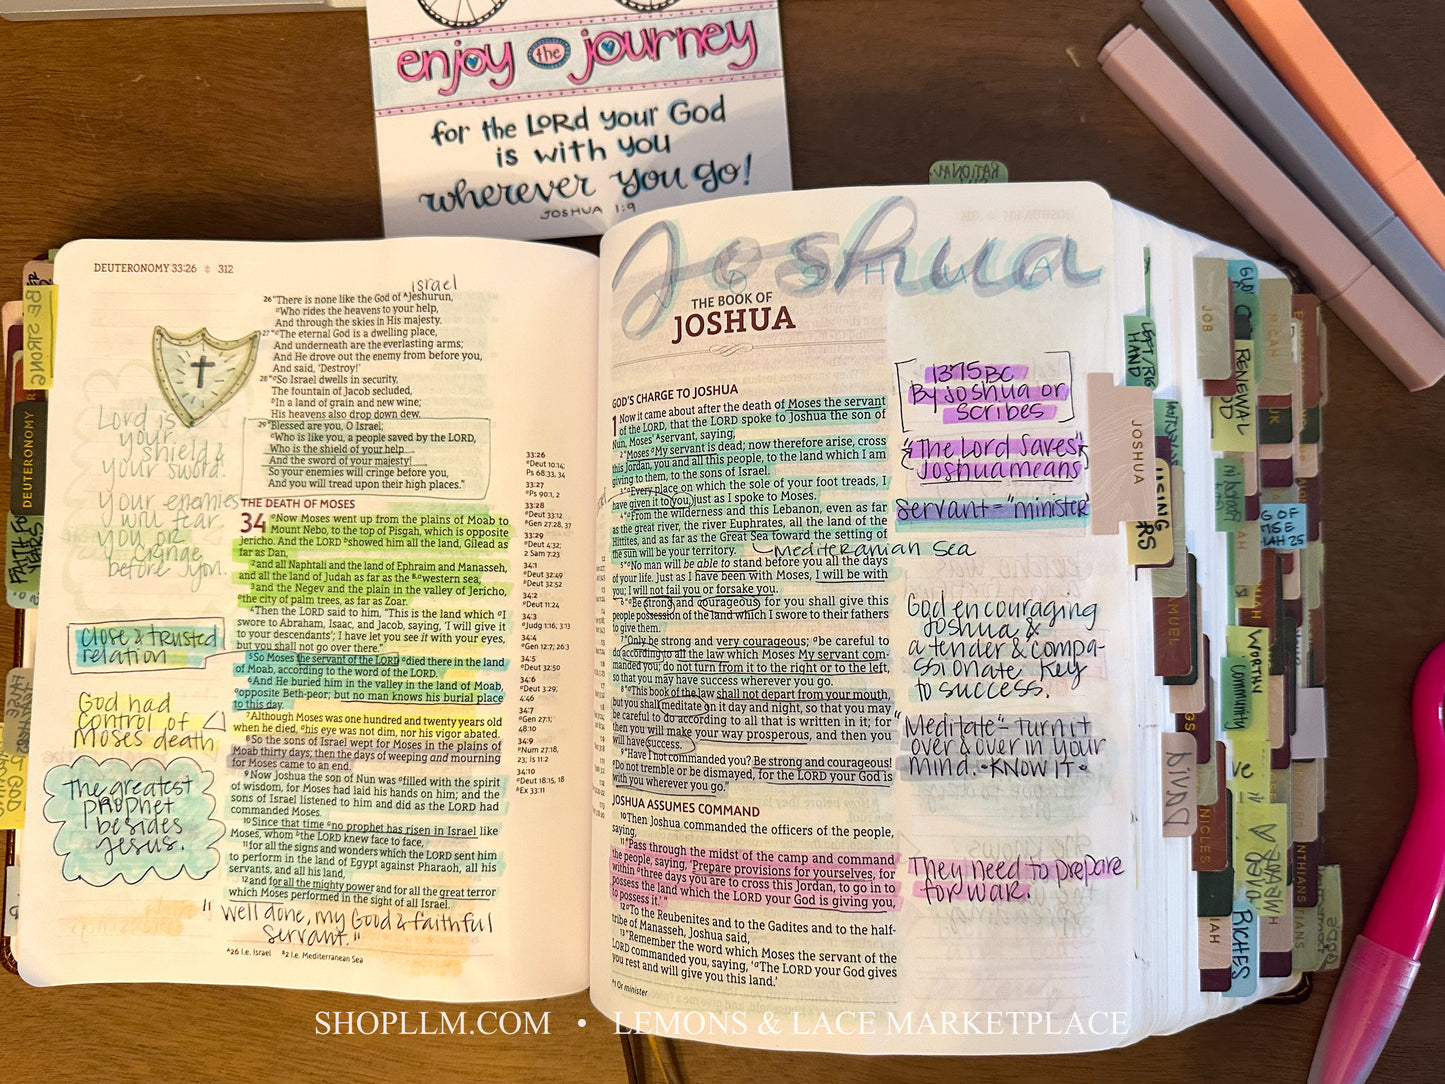 enjoy the journey
for the LORD your God
is with you
wherever you go!
JOSHUA 1:9
DEUTERONOMY 33:26 312
israel
26 "There is none like the God of Jeshurun,
Who rides the heavens to your help,
And through the skies in His majesty.
27 "The eternal God is a dwelling place,
And underneath are the everlasting arms;
And He drove out the enemy from before you,
And said, 'Destroy!'
28 "So Israel dwells in security,
The fountain of Jacob secluded,
In a land of grain and new wine;
His heavens also drop down dew.
29 "Blessed are you, O Israel;
Who is like you, a people saved by the LORD,
Who is the shield of your help
And the sword of your majesty!
So your enemies will cringe before you,
And you will tread upon their high places."
THE DEATH OF MOSES
34 Now Moses went up from the plains of Moab to
Mount Nebo, to the top of Pisgah, which is opposite
Jericho. And the LORD showed him all the land, Gilead as
far as Dan,
2 and all Naphtali and the land of Ephraim and Manasseh,
and all the land of Judah as far as the western sea,
3 and the Negev and the plain in the valley of Jericho,
the city of palm trees, as far as Zoar.
4 Then the LORD said to him, "This is the land which I
swore to Abraham, Isaac, and Jacob, saying, 'I will give it
to your descendants'; I have let you see it with your eyes,
but you shall not go over there."
5 So Moses the servant of the LORD died there in the land
of Moab, according to the word of the LORD.
6 And He buried him in the valley in the land of Moab,
opposite Beth-peor; but no man knows his burial place
to this day.
7 Although Moses was one hundred and twenty years old
when he died, his eye was not dim, nor his vigor abated.
8 So the sons of Israel wept for Moses in the plains of
Moab thirty days; then the days of weeping and mourning
for Moses came to an end.
9 Now Joshua the son of Nun was filled with the spirit
of wisdom, for Moses had laid his hands on him; and the
sons of Israel listened to him and did as the LORD had
commanded Moses.
10 Since that time no prophet has risen in Israel like
Moses, whom the LORD knew face to face,
11 for all the signs and wonders which the LORD sent him
to perform in the land of Egypt against Pharaoh, all his
servants, and all his land,
12 and for all the mighty power and for all the great terror
which Moses performed in the sight of all Israel.
"Well done, my Good & faithful
servant."
A26 I.e. Israel B2 I.e. Mediterranean Sea
Lord is
your
shield &
your sword.
your enemies
will fear
you or
cringe
before you.
close & trusted
relation
God had
control of
Moses death
The greatest
prophet
besides
Jesus.
33:26
Deut 10:14;
Ps 68:33, 34
33:27
Ps 90:1, 2
33:28
Deut 33:12
Gen 27:28, 37
33:29
Deut 4:32;
2 Sam 7:23
34:1
Deut 32:49
Deut 32:52
34:2
Deut 11:24
34:3
Judg 1:16; 3:13
34:4
Gen 12:7; 26:3
34:5
Deut 32:50
34:6
Deut 3:29;
4:46
34:7
Gen 27:1;
48:10
34:9
Num 27:18,
23; Is 11:2
34:10
Deut 18:15, 18
Ex 33:11
BE STRONG
DEUTERONOMY
Joshua
JOSHUA
THE BOOK OF
JOSHUA
GOD'S CHARGE TO JOSHUA
1 Now it came about after the death of Moses the servant
of the LORD, that the LORD spoke to Joshua the son of
Nun, Moses' servant, saying,
2 "Moses My servant is dead; now therefore arise, cross
this Jordan, you and all this people, to the land which I am
giving to them, to the sons of Israel.
3 "Every place on which the sole of your foot treads, I
have given it to you, just as I spoke to Moses.
4 "From the wilderness and this Lebanon, even as far
as the great river, the river Euphrates, all the land of the
Hittites, and as far as the Great Sea toward the setting of
the sun will be your territory.
Mediteranian Sea
5 "No man will be able to stand before you all the days
of your life. Just as I have been with Moses, I will be with
you; I will not fail you or forsake you.
6 "Be strong and courageous, for you shall give this
people possession of the land which I swore to their fathers
to give them.
7 "Only be strong and very courageous; be careful to
do according to all the law which Moses My servant com-
manded you; do not turn from it to the right or to the left,
so that you may have success wherever you go.
8 "This book of the law shall not depart from your mouth,
but you shall meditate on it day and night, so that you may
be careful to do according to all that is written in it; for
then you will make your way prosperous, and then you
will have success.
9 "Have I not commanded you? Be strong and courageous!
Do not tremble or be dismayed, for the LORD your God is
with you wherever you go."
JOSHUA ASSUMES COMMAND
10 Then Joshua commanded the officers of the people,
saying,
11 "Pass through the midst of the camp and command
the people, saying, 'Prepare provisions for yourselves, for
within three days you are to cross this Jordan, to go in to
possess the land which the LORD your God is giving you,
to possess it.'"
12 To the Reubenites and to the Gadites and to the half-
tribe of Manasseh, Joshua said,
13 "Remember the word which Moses the servant of the
LORD commanded you, saying, 'The LORD your God gives
you rest and will give you this land.'
Or minister
1375 BC
By Joshua or
scribes
"The Lord Saves"
Joshua means
servant = "minister"
God encouraging
Joshua &
a tender & compa-
ssionate key
to success.
"Meditate" - turn it
over & over in your
mind. • KNOW IT •
They need to prepare
for war.
LEFT/RIG
HAND
JOSHUA
JOB
RENEWAL
COMMUNITY
RICHES
SHOPLLM.COM • LEMONS & LACE MARKETPLACE